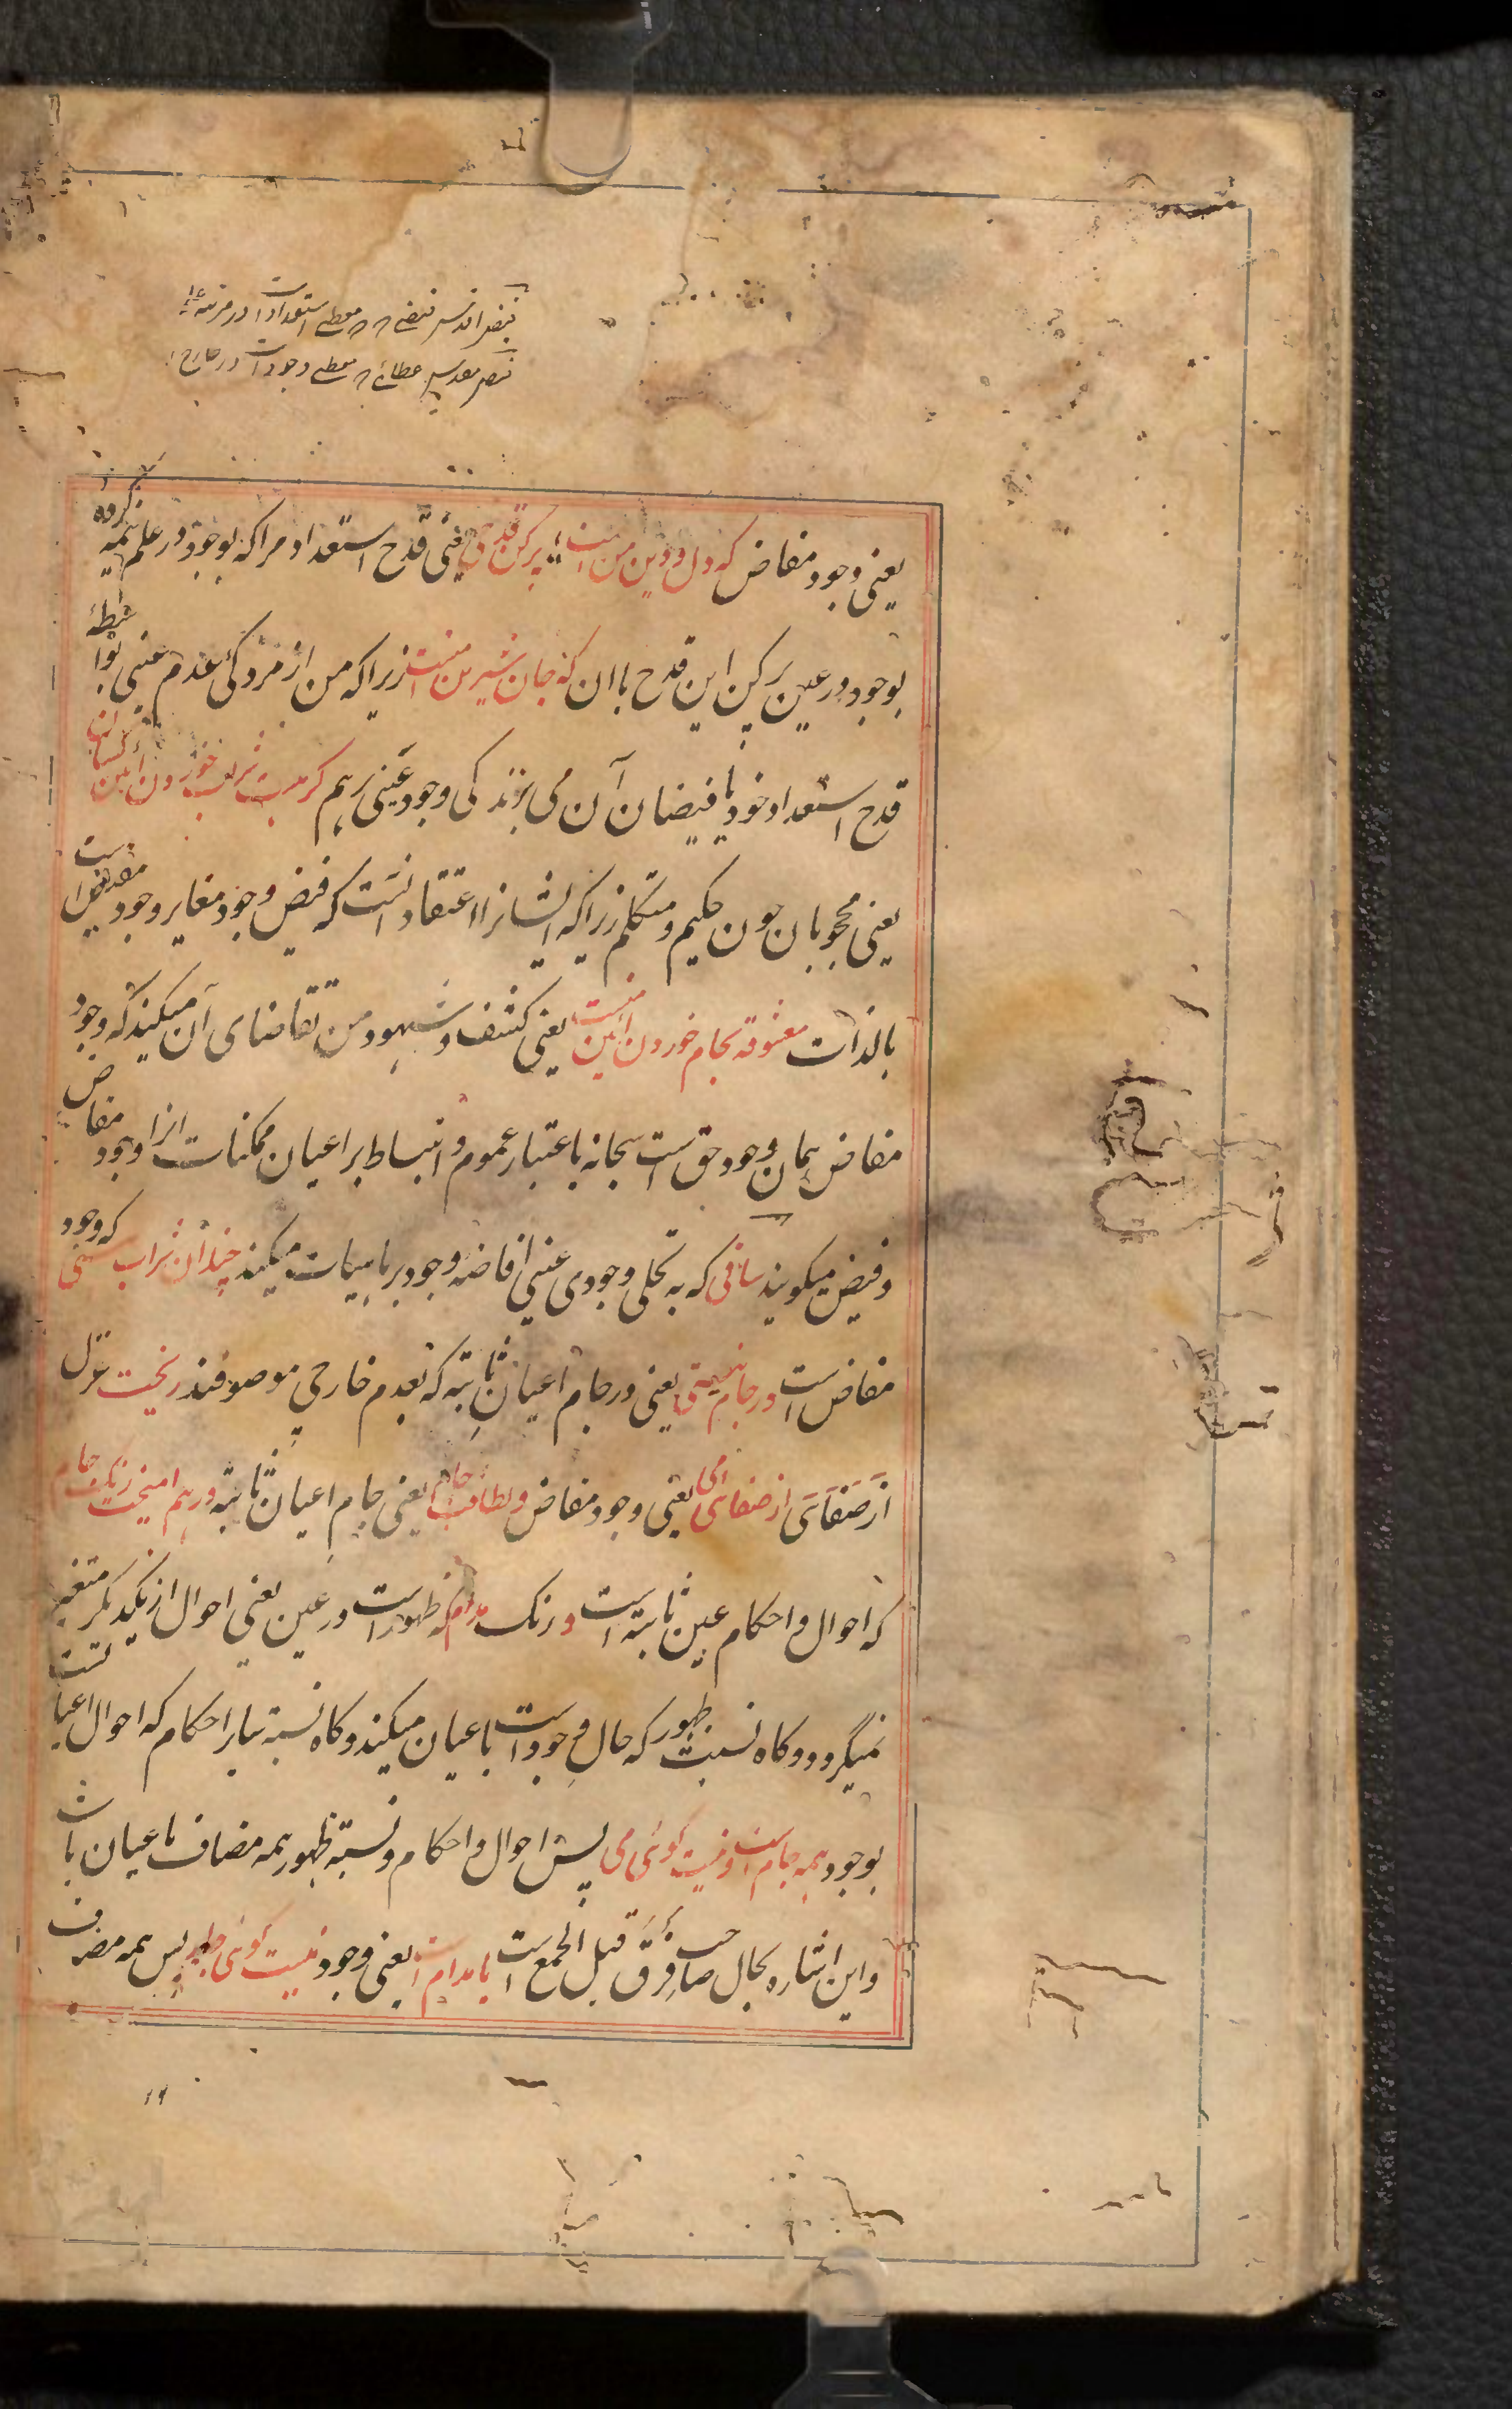 فیض اقدس فیضی که معطی استعدادات در مرتبه
فیض مقدس عطائی که معطی وجودات در خارج
یعنی وجود مفاض که دل و دین من است پر کن قدحی یعنی قدح استعداد مرا که بوجود در علم تنبیه کرده
بوجود در عین پر کن این قدح باان که جان شیرین منست زیرا که من از مردکی عدم عینی بواسطهٔ
قدح استعداد خود با فیضان آن می بزندکی وجود عینی برهم کر نیست شراب خوردن آئین کسان
یعنی محجوبان چون حکیم و متکلم زیرا که ایشانرا اعتقاد انست که فیض وجود مغایر وجود مقدس است
بالذات معشوقه بجام خوردن آئین منست یعنی کشف و شهود من تقاضای آن میکند که وجود
مفاض همان وجود حق است سبحانه باعتبار عموم و انبساط بر اعیان ممکنات ازا وجود مفاض
و فیض میکویند ساقی که به تجلی وجودی عینی افاضه وجود بر ماهیات میکند چندان شراب هستی که وجود
مفاض است در جام نیستی یعنی در جام اعیان ثابته که بعدم خارجی موصوفند ریخت غزل
از صفای از صفای می یعنی وجود مفاض و لطافت جام یعنی جام اعیان ثابته در هم امیخت رنک جام
که احوال و احکام عین ثابته است و رنک مدام که ظهور است در عین یعنی احوال از یکدیکر متغیر
نمیکردد و کاه نسبت ظهور که حال وجود است باعیان میکند و کاه نسبة سایر احکام که احوال اعیا نست
بوجود همه جام است و نیست کوئی می پس احوال و احکام و نسبة ظهور همه مضاف باعیان باشد
و این اشاره بحال صاحب فرق قبل الجمع است یا مدام است یعنی وجود نیست کوئی جام پس همه مضاف